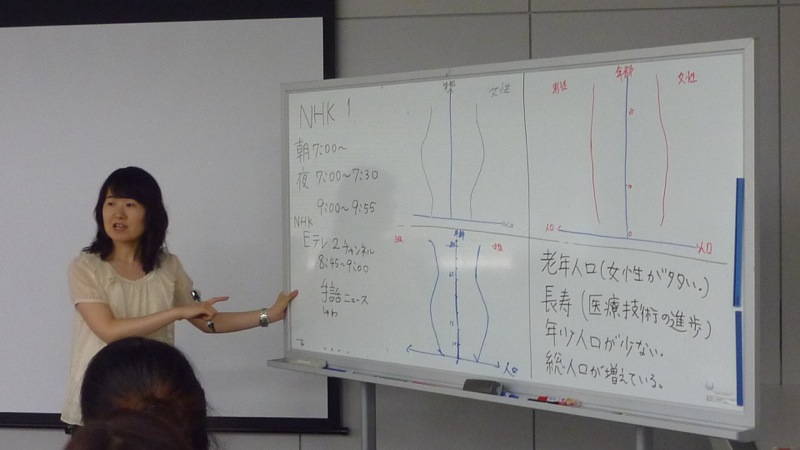 NHK 1
朝 7:00～
夜 7:00～7:30
9:00～9:55
NHK
Eテレ2チャンネル
8:45～9:00
手話ニュース
しゅわ
年齢
女性
人口
男性
年齢
女性
人口
人口
年齢
人口
老年人口(女性が多い。)
長寿 (医療技術の進歩)
年少人口が少ない.
総人口が増えている。